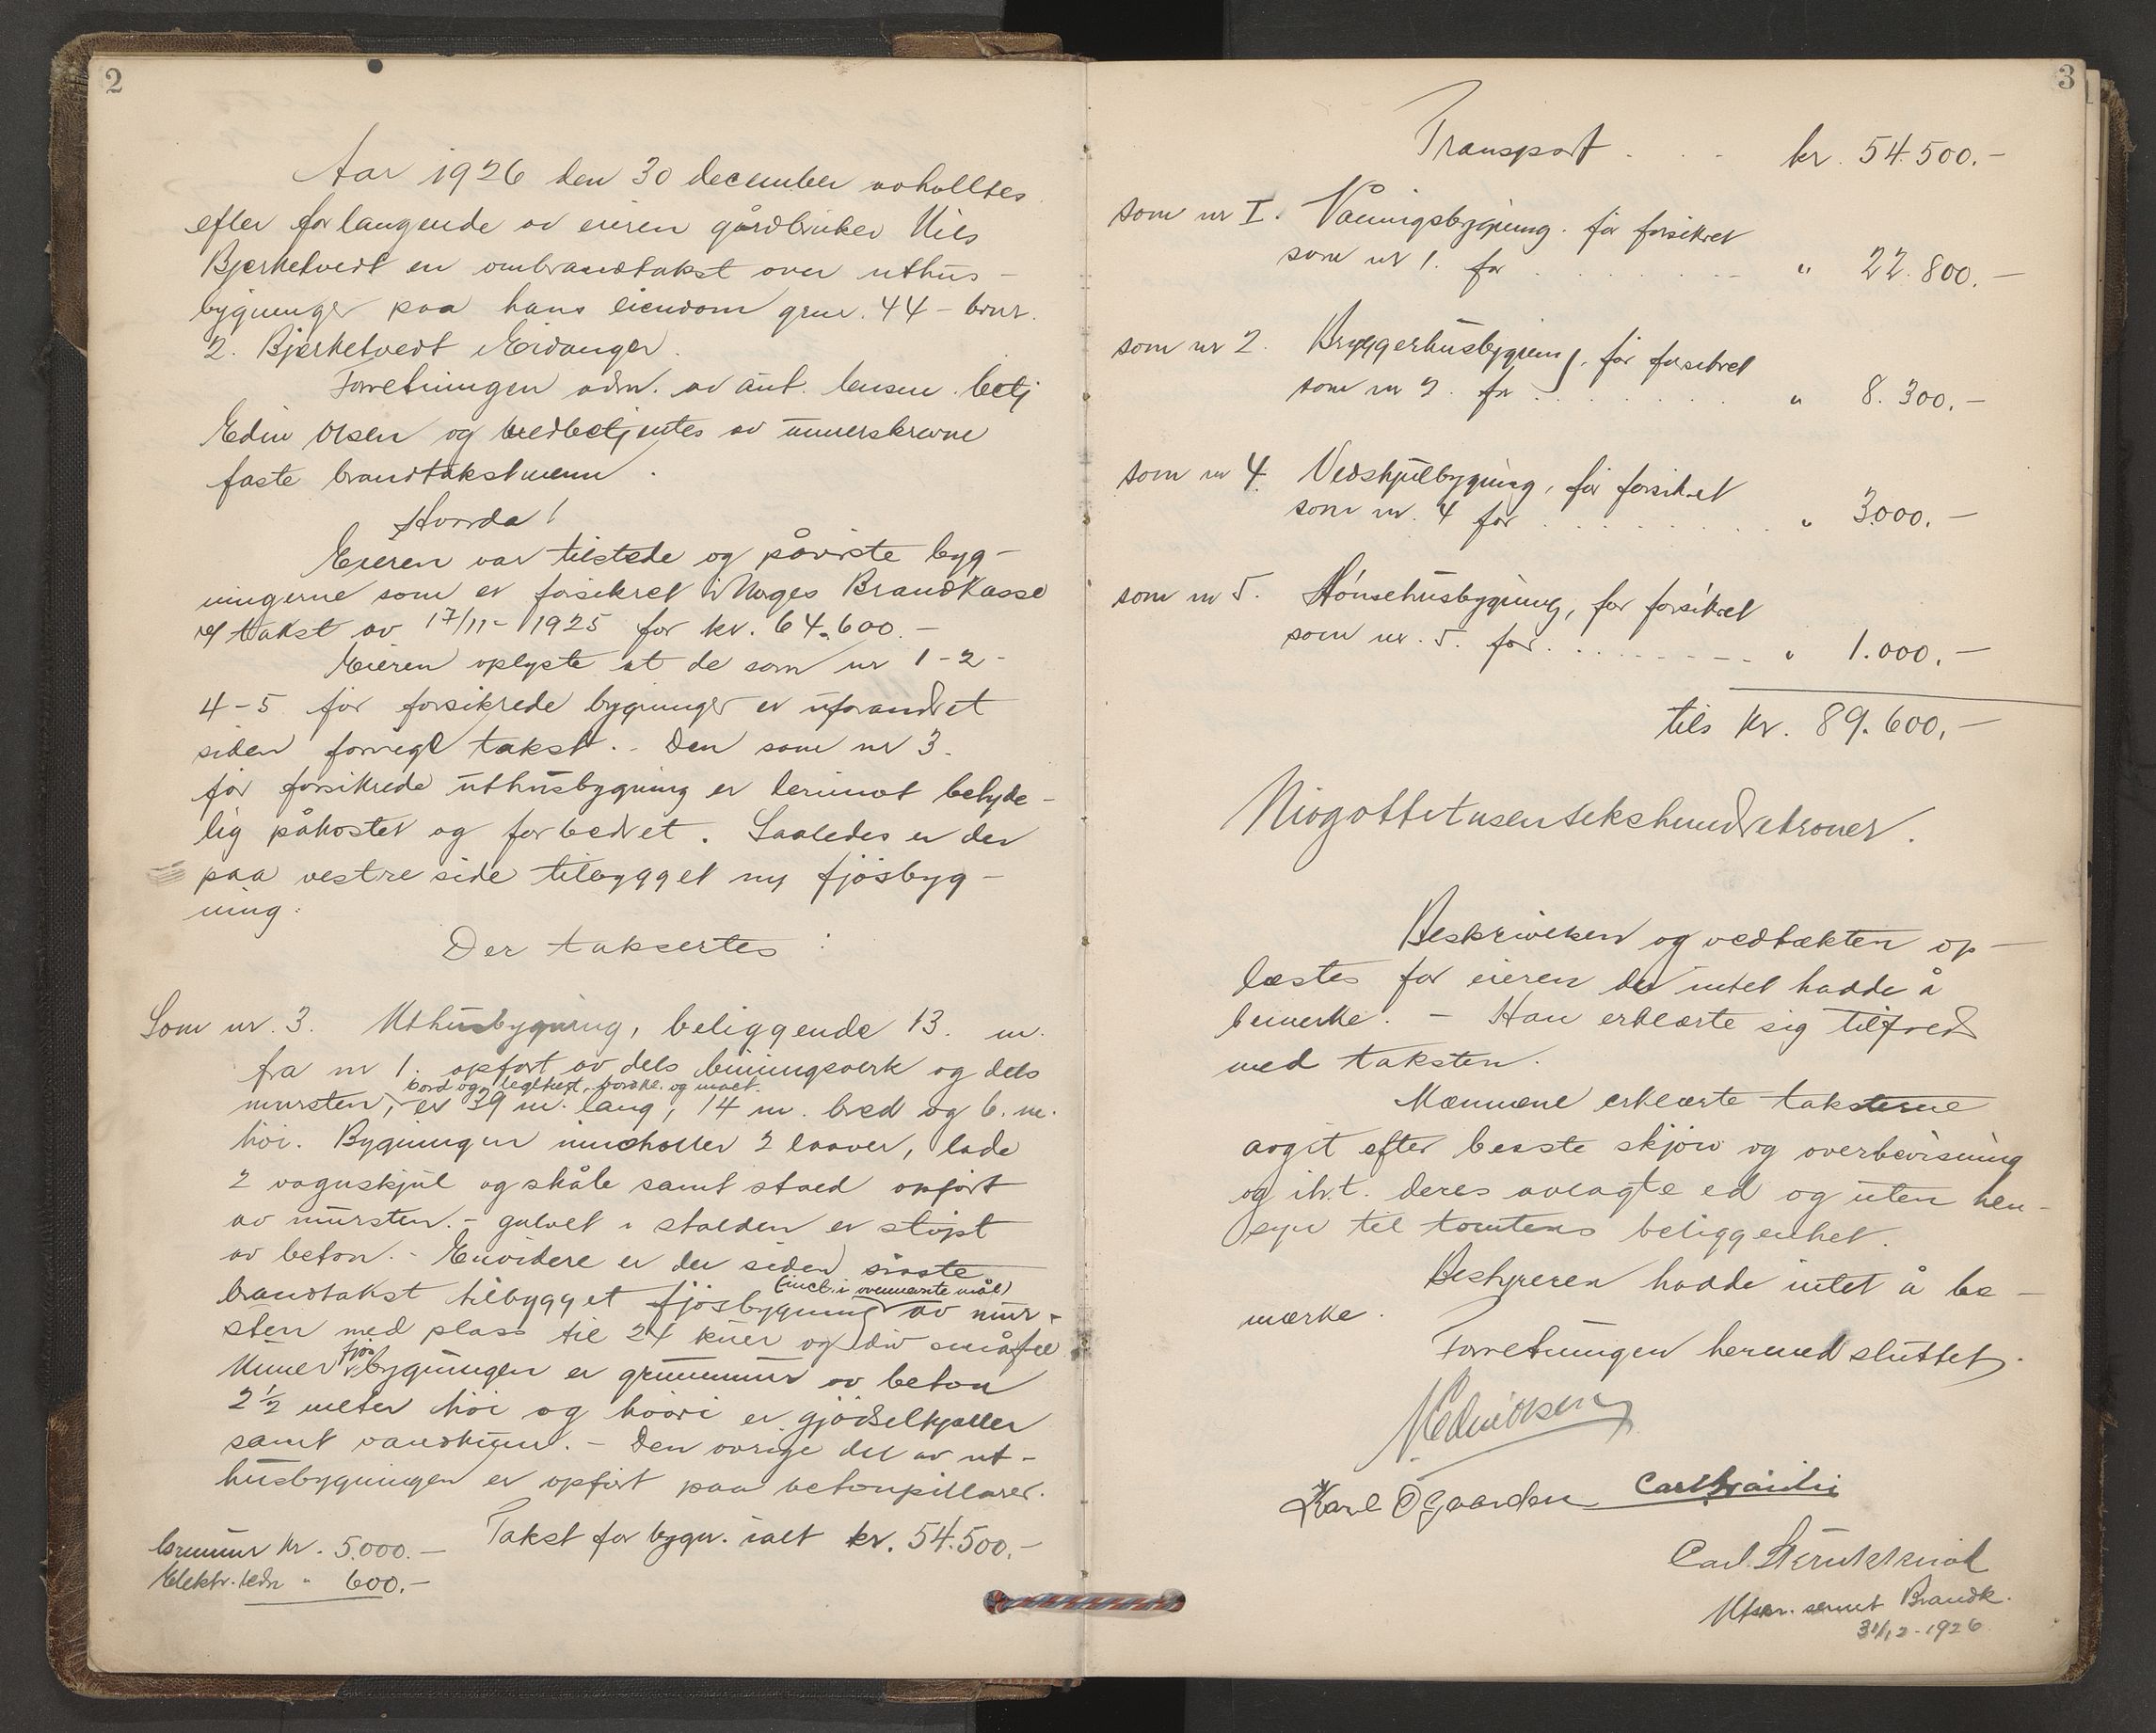 2
Aar 1926 den 30 december avholltes
efter forlangende av eieren gårdbruker Nils
Bjerketvedt en ombrandtakst over uthus-
bygninger paa hans eiendom grnr. 44 - brnr.
2. Bjerketvedt i Eidanger.
Forretningen adm. av aut. lensm. betj
Edin Olsen og vedbetjentes av unnerskrevne
faste brandtakstmenn.
Hvorda!
Eieren var tilstede og påviste byg-
ningerne som er forsikret i Norges Brandkasse
ved takst av 17/11- 1925 for kr. 64.600.-
Eieren oplyste at de som nr 1-2-
4-5 før forsikrede bygninger er uforandret
siden forrige takst. - Den som nr 3.
før forsikrede uthusbygning er derimot betyde-
lig påkostet og forbedret. Saaledes er der
paa vestre side tilbygget ny fjøsbyg-
ning.
Der taksertes :
Som nr. 3. Uthusbygning, beliggende 13. m.
fra nr 1. opført av dels binningsverk og dels
bord og teglhengt, bordkl. og malt.
mursten, er 39 m. lang, 14 m. bred og 6. m.
høi. Bygningen inneholler 2 laaver, lade
2 vognskjul og skåle samt stald opført
av mursten. - gulvet i stalden er støpt
av beton. - Envidere er der siden siste
(incl. i ovennævnte mål)
brandtakst tilbygget fjøsbygning av mur-
sten med plass til 24 kuer og div småfe
Unner fjøsbygningen er grunnmur av beton
2½ meter høi og hvori er gjødselkjeller
samt vandkum. - Den øvrige del av ut-
husbygningen er opført paa betonpillarer.
Takst for bygn. ialt kr. 54.500.-
Grunmur kr. 5.000.-
Elektr. ledn " 600.-
3
Transport . . . kr. 54.500.-
som nr I. Våningsbygning. før forsikret
som nr 1. for . . . . . " 22.800.-
som nr 2. Bryggerhusbygning, før forsikret
som nr 2. for . . . . . " 8.300.-
som nr 4. Vedskjulbygning, før forsikret
som nr. 4 for . . . . . " 3000.-
som nr 5. Hønsehusbygning, før forsikret
som nr. 5. for . . . . . " 1.000.-
tils kr. 89.600.-
Niogottitusensekshundrekroner.
Beskrivelsen og vedtækten op-
læstes for eieren der intet hadde å
bemerke. - Han erklærte sig tilfreds
med taksten.
Mænnene erklærte taksterne
avgit efter beste skjøn og overbevisning
og ih.t. deres avlagte ed og uten hen-
syn til tomtens beliggenhet.
Bestyreren hadde intet å be-
mærke.
Forretningen hermed sluttet.
Karl Ogaarden
Carl
Utskr. sennt Brandk.
31/12-1926